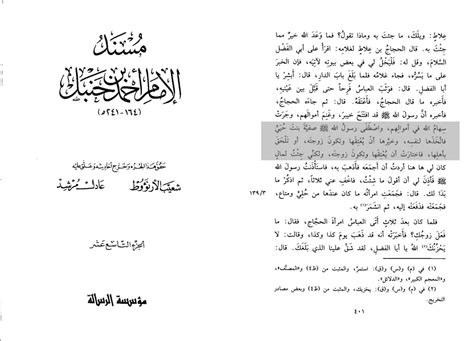 مُسْنَدُ
الإِمَامِ أَحْمَدَ بْنِ حَنْبَلٍ
(١٦٤-٢٤١هـ)
حقق هذا الجزء وخرج أحاديثه وعلق عليه
شعيب الأرنؤوط عادل مرشد
الجزء التاسع عشر
مؤسسة الرسالة
عِلاطٍ: ويلَكَ، ما جئتَ به وماذا تقولُ؟ فما وَعَدَ اللهُ خيرٌ مما
جئتَ به. قال الحجاجُ بن عِلاطٍ لغلامِه: اقرأْ على أبي الفَضْلِ
السَّلامَ، وقل له: فَلْيَخْلُ لي في بعض بيوتِه لآتِيَه، فإن الخبرَ
على ما يَسُرُّه، فجاء غلامُه فلما بَلَغَ بابَ الدار، قال: أَبشِرْ يا
أبا الفضل. قال: فوَثَبَ العباسُ فَرِحاً حتى قَبَّلَ بين عَيْنَيه،
فأخبره ما قال الحجاجُ، فأَعْتَقَه. قال: ثم جاءه الحجاجُ،
فأخبره أن رسولَ الله ﷺ قد افتَتَح خيبرَ، وغَنِمَ أموالَهم، وجَرَتْ
سِهامُ الله في أموالِهم، واصْطَفى رسولُ الله ﷺ صفيَّةَ بنتَ حُيَيٍّ
فاتَّخَذَها لنفسِه، وخيَّرها أن يُعتِقَها وتكونَ زوجتَه، أو تَلْحَقَ
بأهلِها، فاختارت أن يُعتِقَها وتكونَ زوجتَه، ولكنِّي جئتُ لمالٍ
كان لي ها هنا أردتُ أن أجمعَه فأَذهبَ به، فاستأذنتُ رسولَ الله
ﷺ فأَذِنَ لي أن أقولَ ما شِئْتُ، فأَخْفِ عني ثلاثاً، ثم اذكُرْ ما
بَدَا لك. قال: فجَمَعَتِ امرأتُه ما كان عندها من حُلِيٍّ ومَتاعٍ،
١٣٩/٣
فجَمَعَتْه فدَفَعَتْه إليه، ثم انشَمَرَ(١) به.
فلما كان بعدَ ثلاثٍ أتى العباسُ امرأةَ الحجَّاج، فقال: ما
فَعَلَ زوجُكِ؟ فأخبرَتْه أنه قد ذَهَبَ يومَ كذا وكذا، وقالت: لا
يَحْزُنُكَ(٢) اللهُ يا أبا الفضلِ، لقد شَقَّ علينا الذي بَلَغَكَ. قال:
(١) في (م) و(س) و(ق): استمرَّ، والمثبت من (ظ٤) و«المصنَّف»،
و«المعجم الكبير»، و«الدلائل».
(٢) في (م) و(س) و(ق): يخزيك، والمثبت من (ظ٤) وبعض مصادر
التخريج.
٤٠١